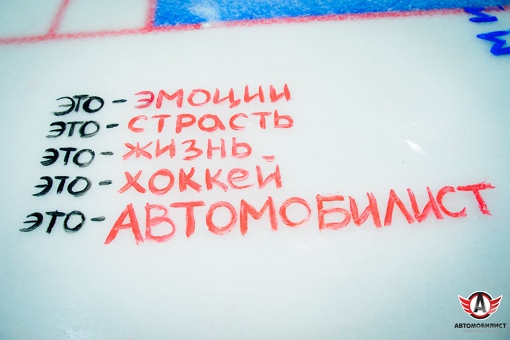 это - эмоции
это - страсть
это - жизнь
это - хоккей
это - АВТОМОБИЛИСТ
А
АВТОМОБИЛИСТ